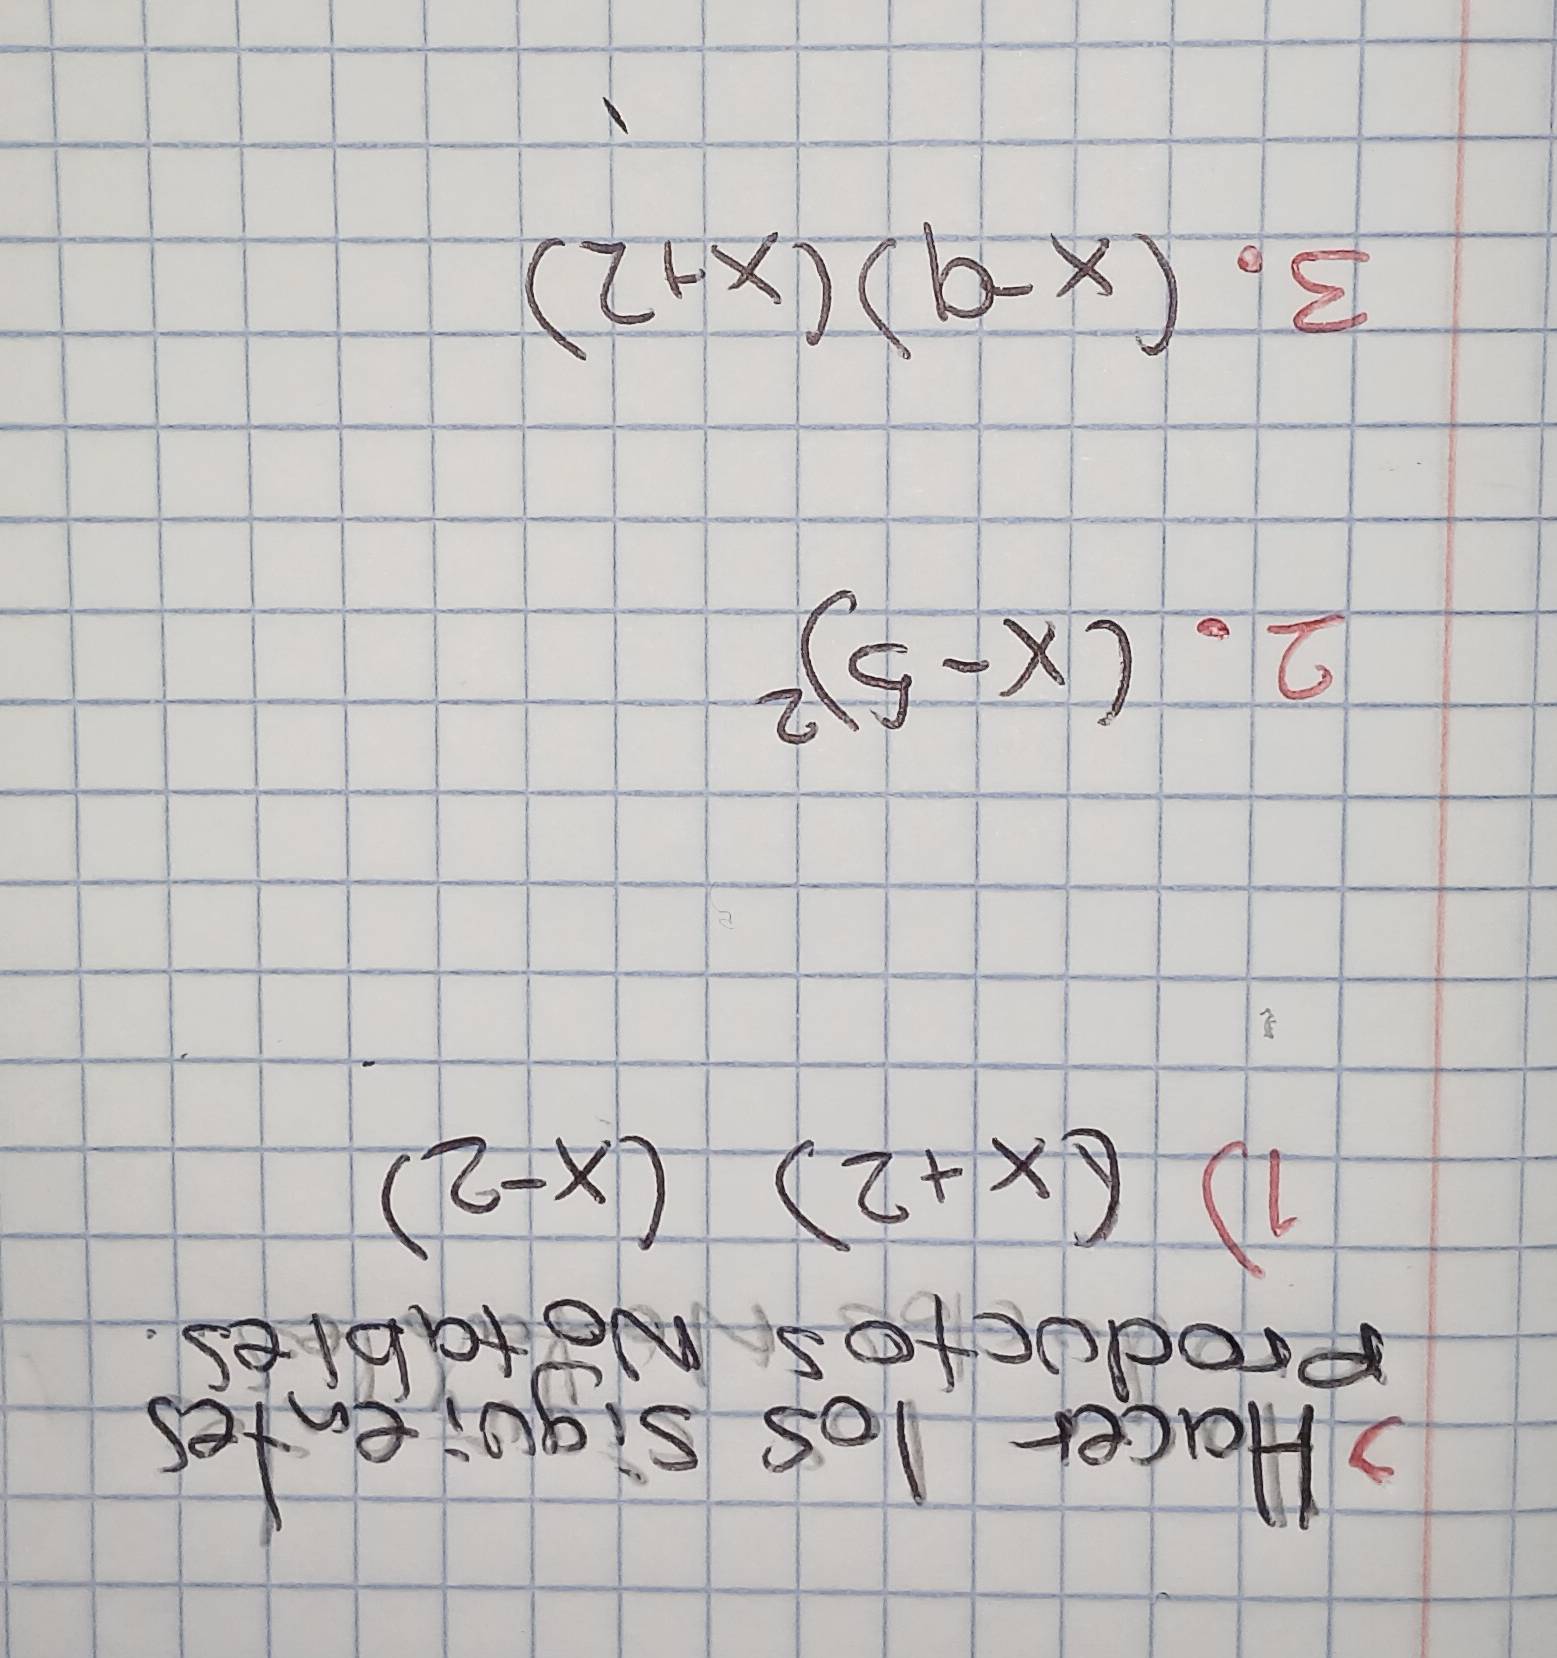 > Hacer los siguientes
Productos Notables.
1) (x+2) (x-2)
2. (x-5)²
3. (x-9)(x+2)